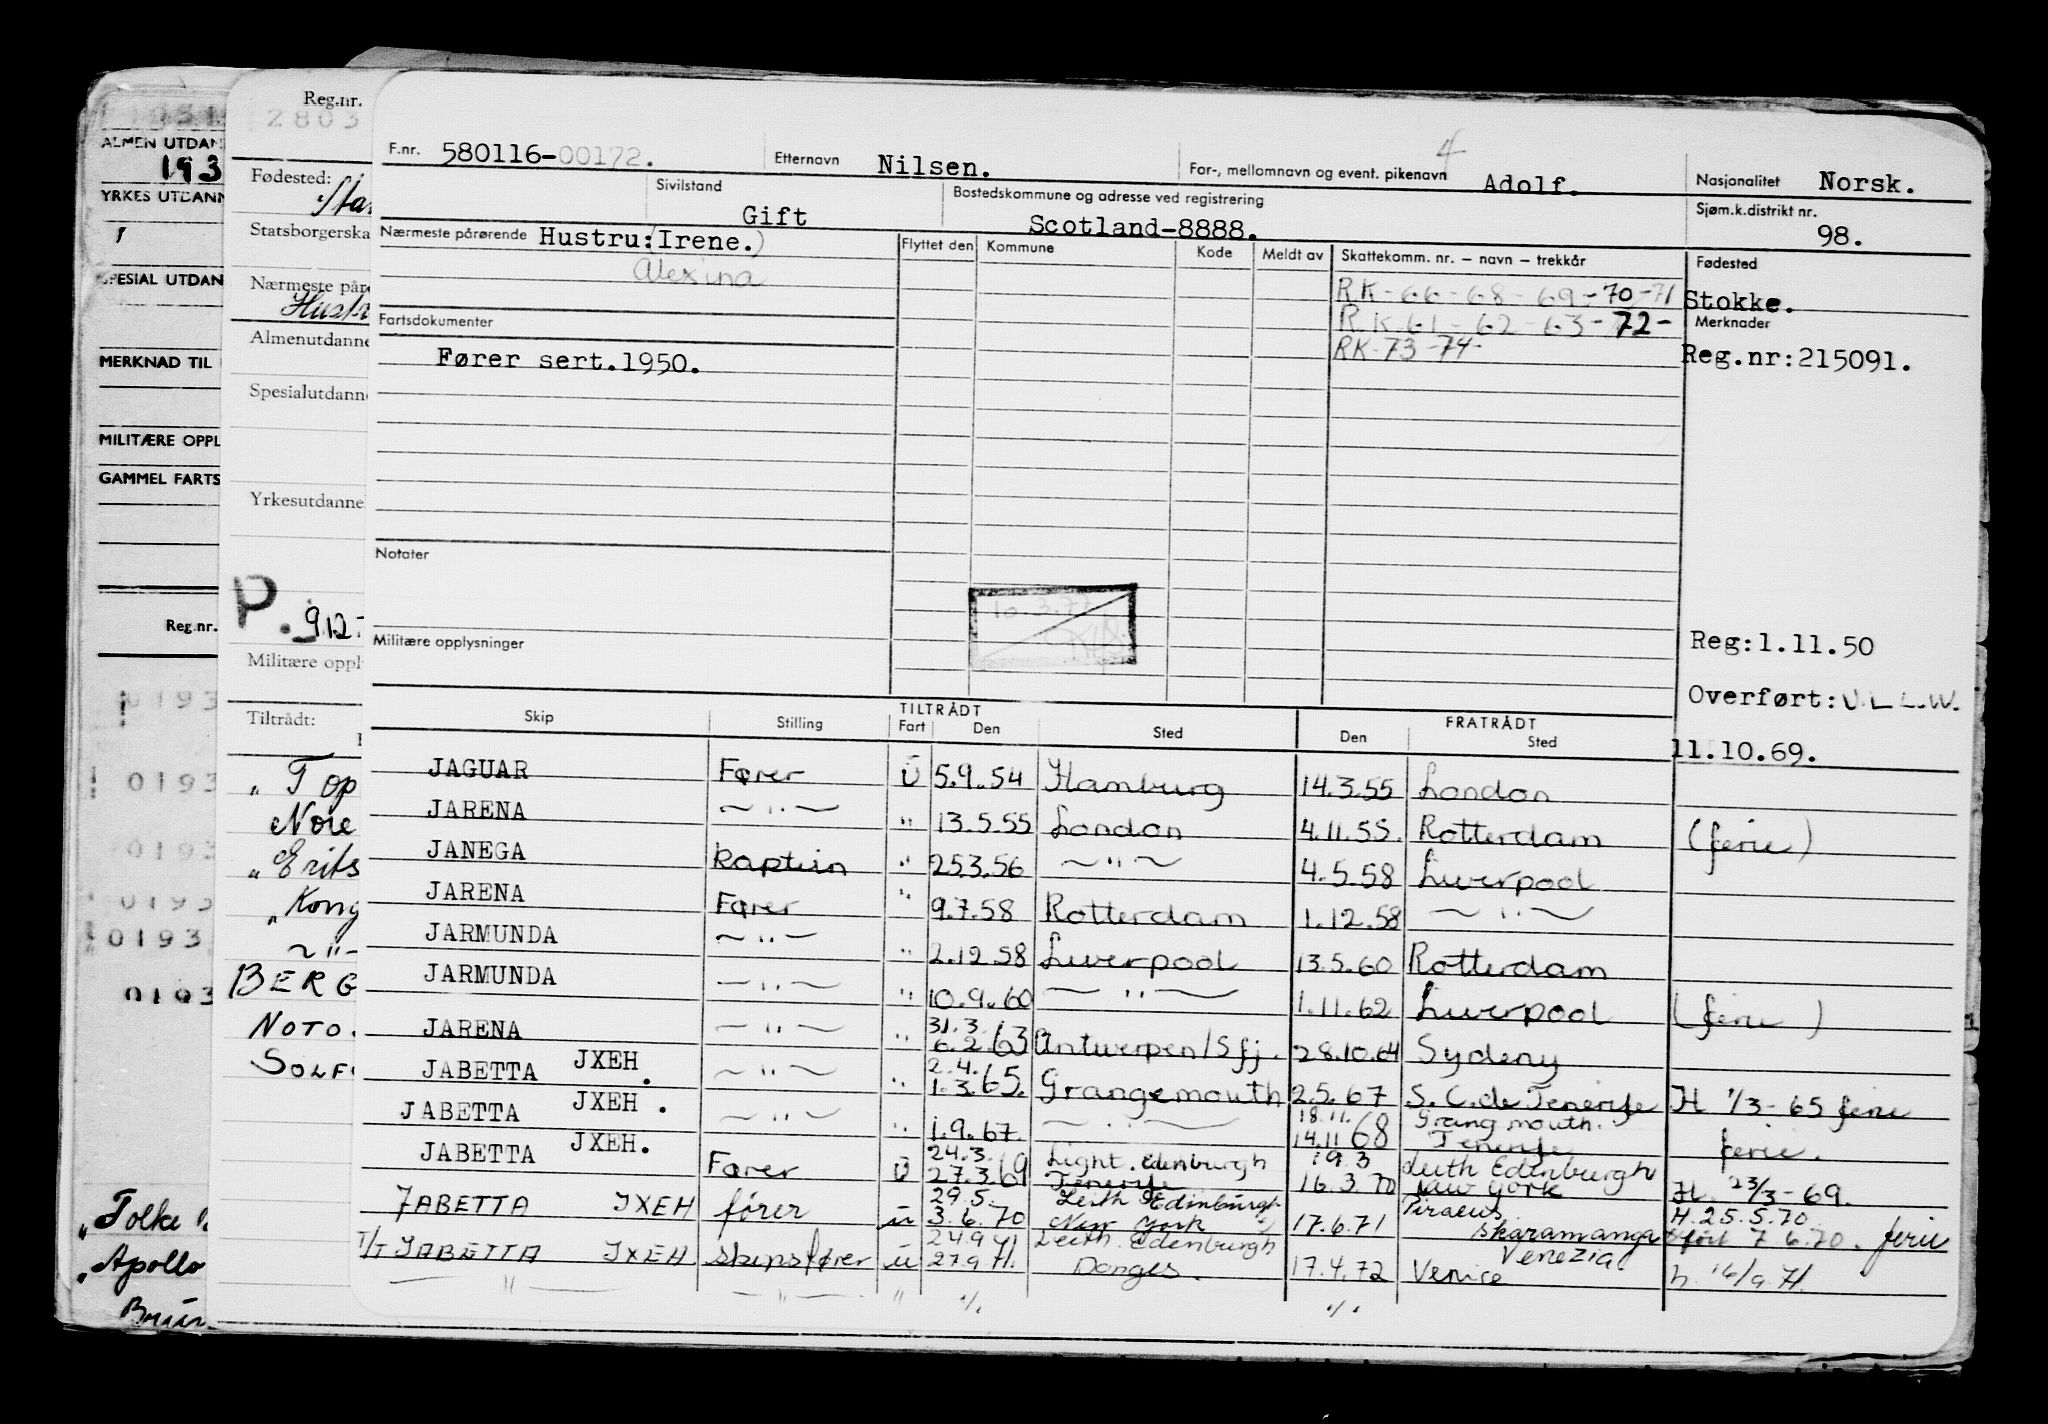 Reg.nr.
2803
ALMEN UTDAN
193
YRKES UTDANN
SPESIAL UTDAN
MERKNAD TIL
MILITÆRE OPPL
GAMMEL FARTS
Reg.nr.
0193
0193
0193
0193
0193
0193
"Tolke
"Apollo
Fødested:
Sta
Statsborgerska
Nærmeste påre
Hustr
Almenutdanne
Spesialutdanne
Yrkesutdannel
P. 912-
Militære oppl
Tiltrådt:
" Top
Nore
" Erits
" Kong
~ " -
BERG
NOTO.
SOLF
F.nr. 580116-00172. Etternavn Nilsen. For-, mellomnavn og event. pikenavn Adolf. Nasjonalitet Norsk.
4
Sivilstand Gift Bostedskommune og adresse ved registrering Scotland-8888. Sjøm.k.distrikt nr. 98.
Nærmeste pårørende Hustru:(Irene.) Flyttet den Kommune Kode Meldt av Skattekomm. nr. – navn – trekkår Fødested
Alexina RK-66-68-69-70-71 Stokke.
Fartsdokumenter R.K.61-62-63-72- Merknader
Fører sert.1950. RK-73-74- Reg.nr:215091.
Notater
10.3.77
Militære opplysninger Reg:1.11.50
Overført: U.L.L.W.
11.10.69.
Skip Stilling TILTRÅDT Fart Den Sted FRATRÅDT Den Sted
JAGUAR Fører U 5.9.54 Hamburg 14.3.55 London
JARENA ~ " ~ " 13.5.55 London 4.11.55. Rotterdam (ferie)
JANEGA Kaptein " 25.3.56 ~ " ~ 4.5.58 Liverpool
JARENA Fører " 9.7.58 Rotterdam 1.12.58 ~ " ~
JARMUNDA ~ " ~ " 2.12.58 Liverpool 13.5.60 Rotterdam
JARMUNDA ~ " ~ " 10.9.60 ~ " ~ 1.11.62 Liverpool (ferie)
JARENA ~ " ~ " 31.3. 6.2.63 Antwerpen/Sfj. 28.10.64 Sydeny
JABETTA JXEH. ~ " ~ " 2.4. 1.3.65. Grangemouth 2.5.67 S.C.de Tenerife H 1/3-65 ferie
JABETTA JXEH. ~ " ~ " 1.9.67. ~ " ~ 18.11. 14.11.68 Grangmouth. Tenerife ferie.
JABETTA JXEH. Fører Ū 24.3. 27.3.69 Light. Edenburgh Tenerife 19.3 16.3.70 Leith Edenburgh New York H. 23/3-69.
JABETTA JXEH fører ū 29.5. 3.6.70 Leith Edinburgh New York 17.6.71 Piraeus Skaramanga H.25.5.70 7.6.70. ferie
T/T JABETTA JXEH skipsfører ū 24.9 27.9.71. Leith. Edenburgh Donges. 17.4.72 Venezia Venice h. 16/9.71.
— " — — " — " ./. ./.